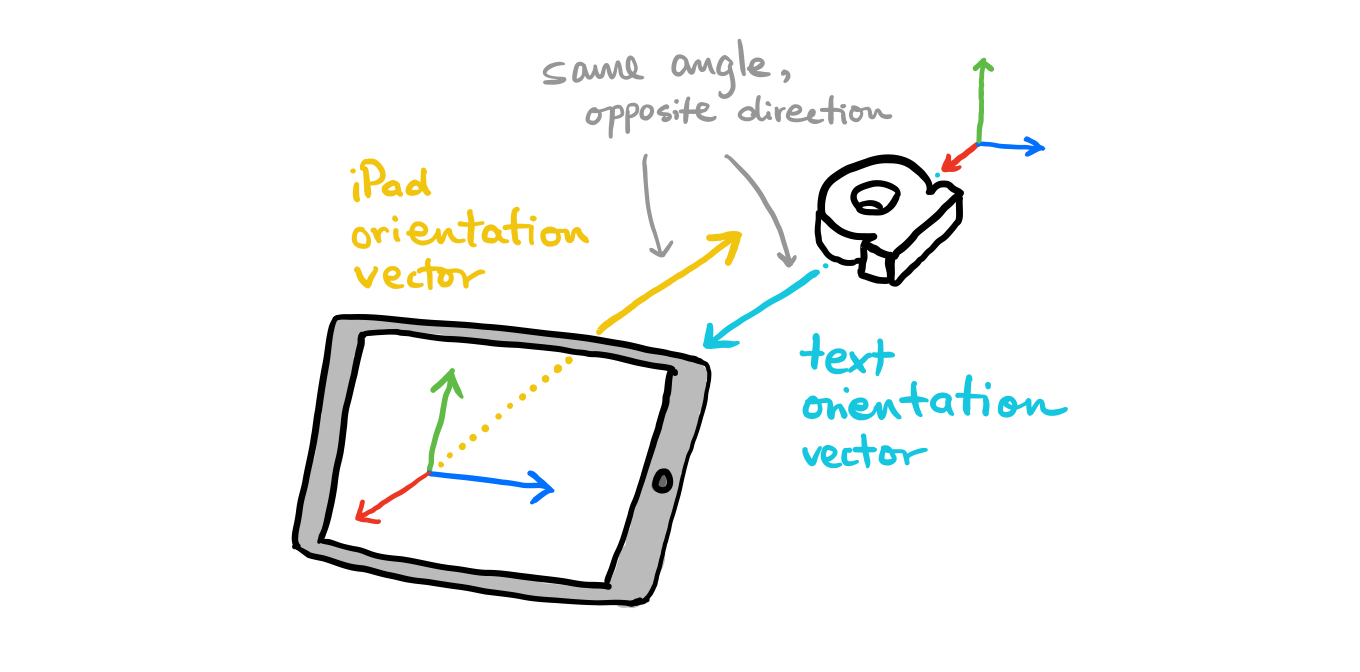 same angle,
opposite direction
iPad
orientation
vector
text
orientation
vector
a